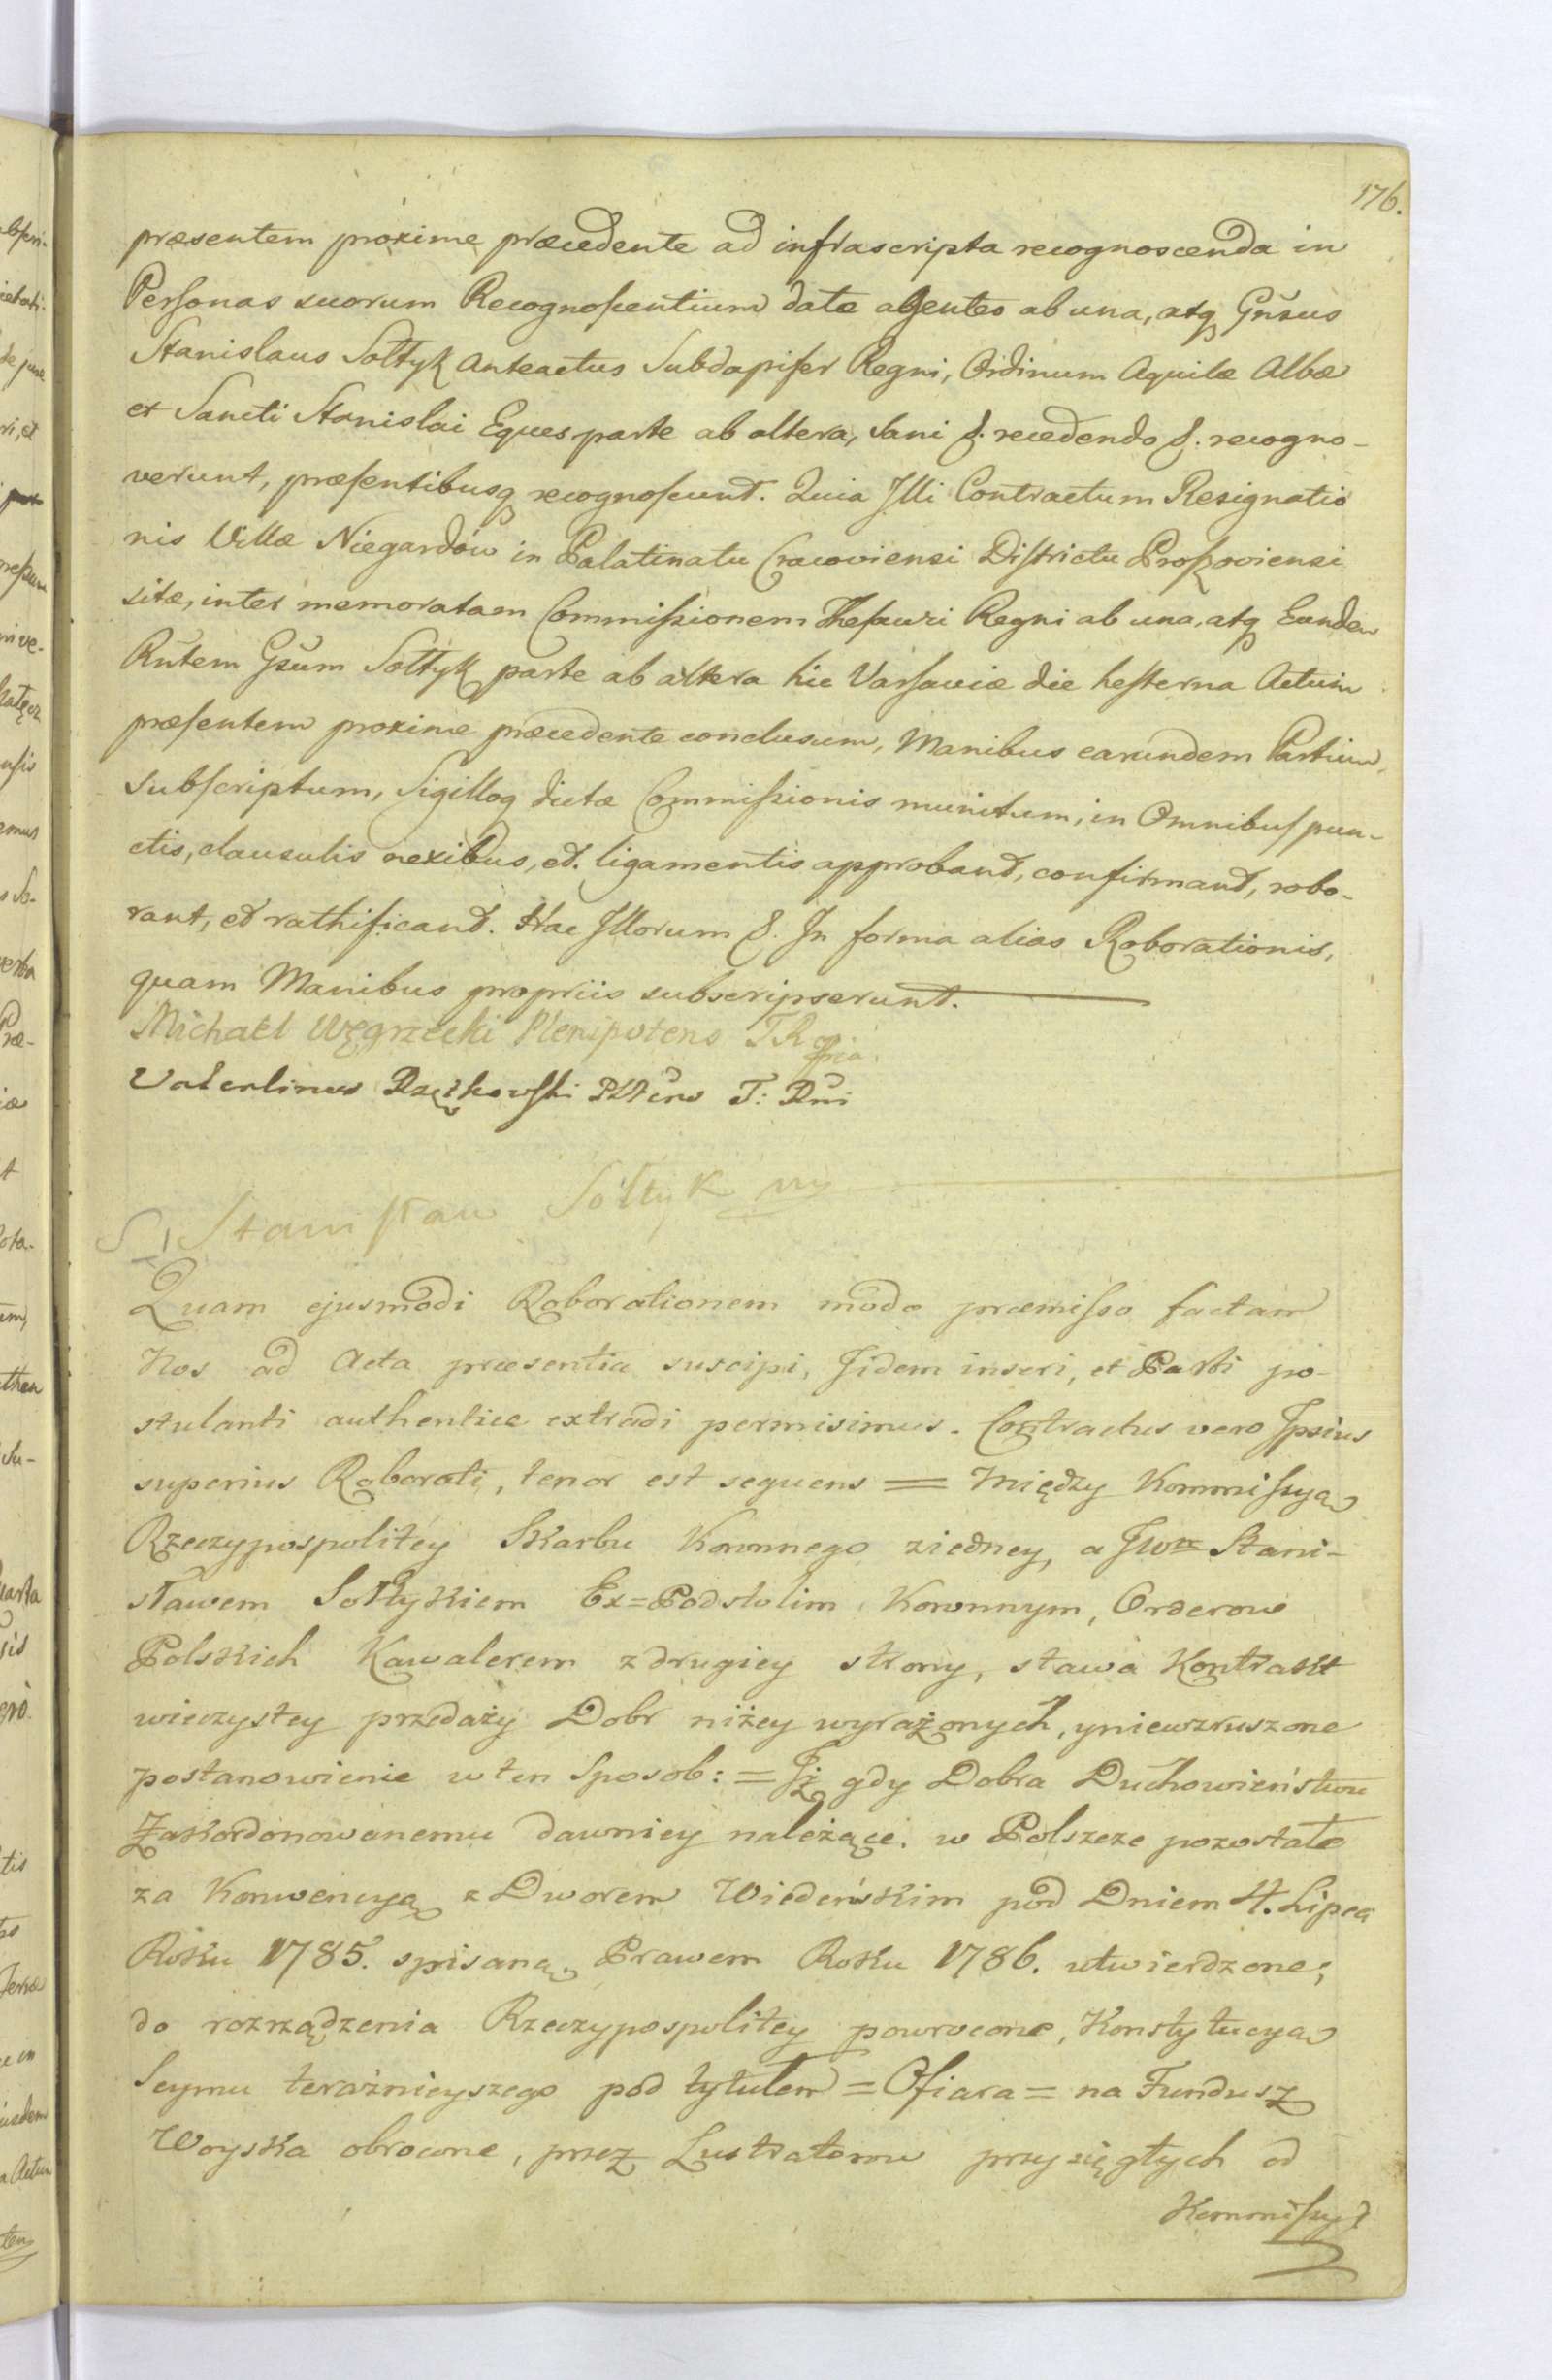 176.
præsentem proxime præcedente ad infrascripta recognoscenda in
Personas suorum Recognoscentium datæ agentes ab una, atq Gnsus
Stanislaus Sołtyk Anteactus Subdapifer Regni, Ordinum Aquilæ Albæ
et Sancti Stanislai Eques parte ab altera, Sani &. recedendo &. recogno-
verunt, præsentibusq recognoscunt. Quia Illi Contractum Resignatio
nis Villæ Niegardów in Palatinatu Cracoviensi Districtu Proszoviensi
sitæ, inter memoratam Commissionem Thesauri Regni ab una, atq Eundem
Rutem Gsum Sołtyk parte ab altera hic Varsaviæ die hesterna Actum
præsentem proxime præcedente conclusum, Manibus earundem Partium
subscriptum, Sigilloq dictæ Commissionis munitum, in Omnibus pun-
ctis, clausulis nexibus, et ligamentis approbant, confirmant, robo-
rant, et rathificant. Hac Illorum &. In forma alias Roborationis,
quam Manibus propriis subscripserunt.
Michael Węgrzecki Plenipotens T R
Valentinus T:
Stanisław Sołtyk mp
Quam ejusmodi Roborationem modo præmisso factam
Nos ad Acta præsentia suscipi, Iidem inseri, et Parti po-
stulanti authentice extradi permisimus. Contractus vero Ipsius
superius Roborati, tenor est sequens = Między Kommissyą
Rzeczypospolitey Skarbu Koronnego ziedney, a JWm Stani-
sławem Sołtykiem Ex=Podstolim Koronnym, Orderow
Polskich Kawalerem z drugiey strony, stawa Kontrakt
wieczystey przedaży Dobr niżey wyrażonych, y niewzruszone
postanowienie w ten Sposob: = Iż gdy Dobra Duchowieństwu
Zakordonowanemu dawniey należące, w Polszcze pozostałe
za Konwencyą z Dworem Wiedeńskim pod Dniem 4. Lipca
Roku 1785. spisaną, Prawem Roku 1786. utwierdzone;
do rozrządzenia Rzeczypospolitey powrocone, Konstytucyą
Seymu teraźnieyszego pod tytułem = Ofiara = na Fundusz
Woyska obrocone, przez Lustratorow przysięgłych od
Kommissyi